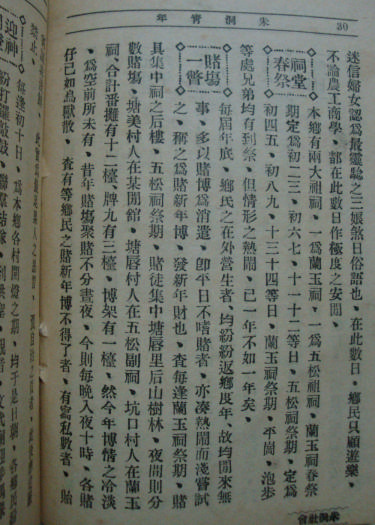 朱洞青年
30
迷信婦女認爲最靈驗之三娘煞日俗語也、在此數日、鄉民只顧遊樂、
不論農工商學、都在此數日作極度之安閒、
祠堂春祭
本鄉有兩大祖祠、一爲蘭玉祠、一爲五松祖祠、蘭玉祠春祭
期定爲初二三、初六七、十一十二等日、五松祠祭期、定爲
初四五、初八九、十三十四等日、蘭玉祠祭期、平崗、泡步
等處兄弟均有到祭、但情形之熱鬧、已一年不如一年矣、
賭塲一瞥
每屆年底、鄉民之在外營生者、均紛紛返鄉度年、故均閒來無
事、多以賭博爲消遣、卽平日不嗜賭者、亦湊熱鬧而淺嘗試
之、稱之爲賭新年博、發新年財也、査每逢蘭玉祠祭期、賭
具集中祠之后樓、五松祠祭期、賭徒集中塘唇里后山樹林、夜間則分
數賭塲、塘美村人在某閒館、塘唇村人在五松副祠、坑口村人在蘭玉
祠、合計番攤有十二檯、牌九有三檯、博架有一檯、然今年博情之冷淡
、爲空前所未有、昔年賭塲聚賭不分晝夜、今則每晚入夜十時、各賭
仔已如鳥獸散、査有等鄉民之賭新年博不得了者、有寫私數者、賭
禁止、
迎神
每逢初十日、爲本鄉各村開燈之期、均于是日
紛打鑼敲鼓、聯羣結隊、
朱洞社會